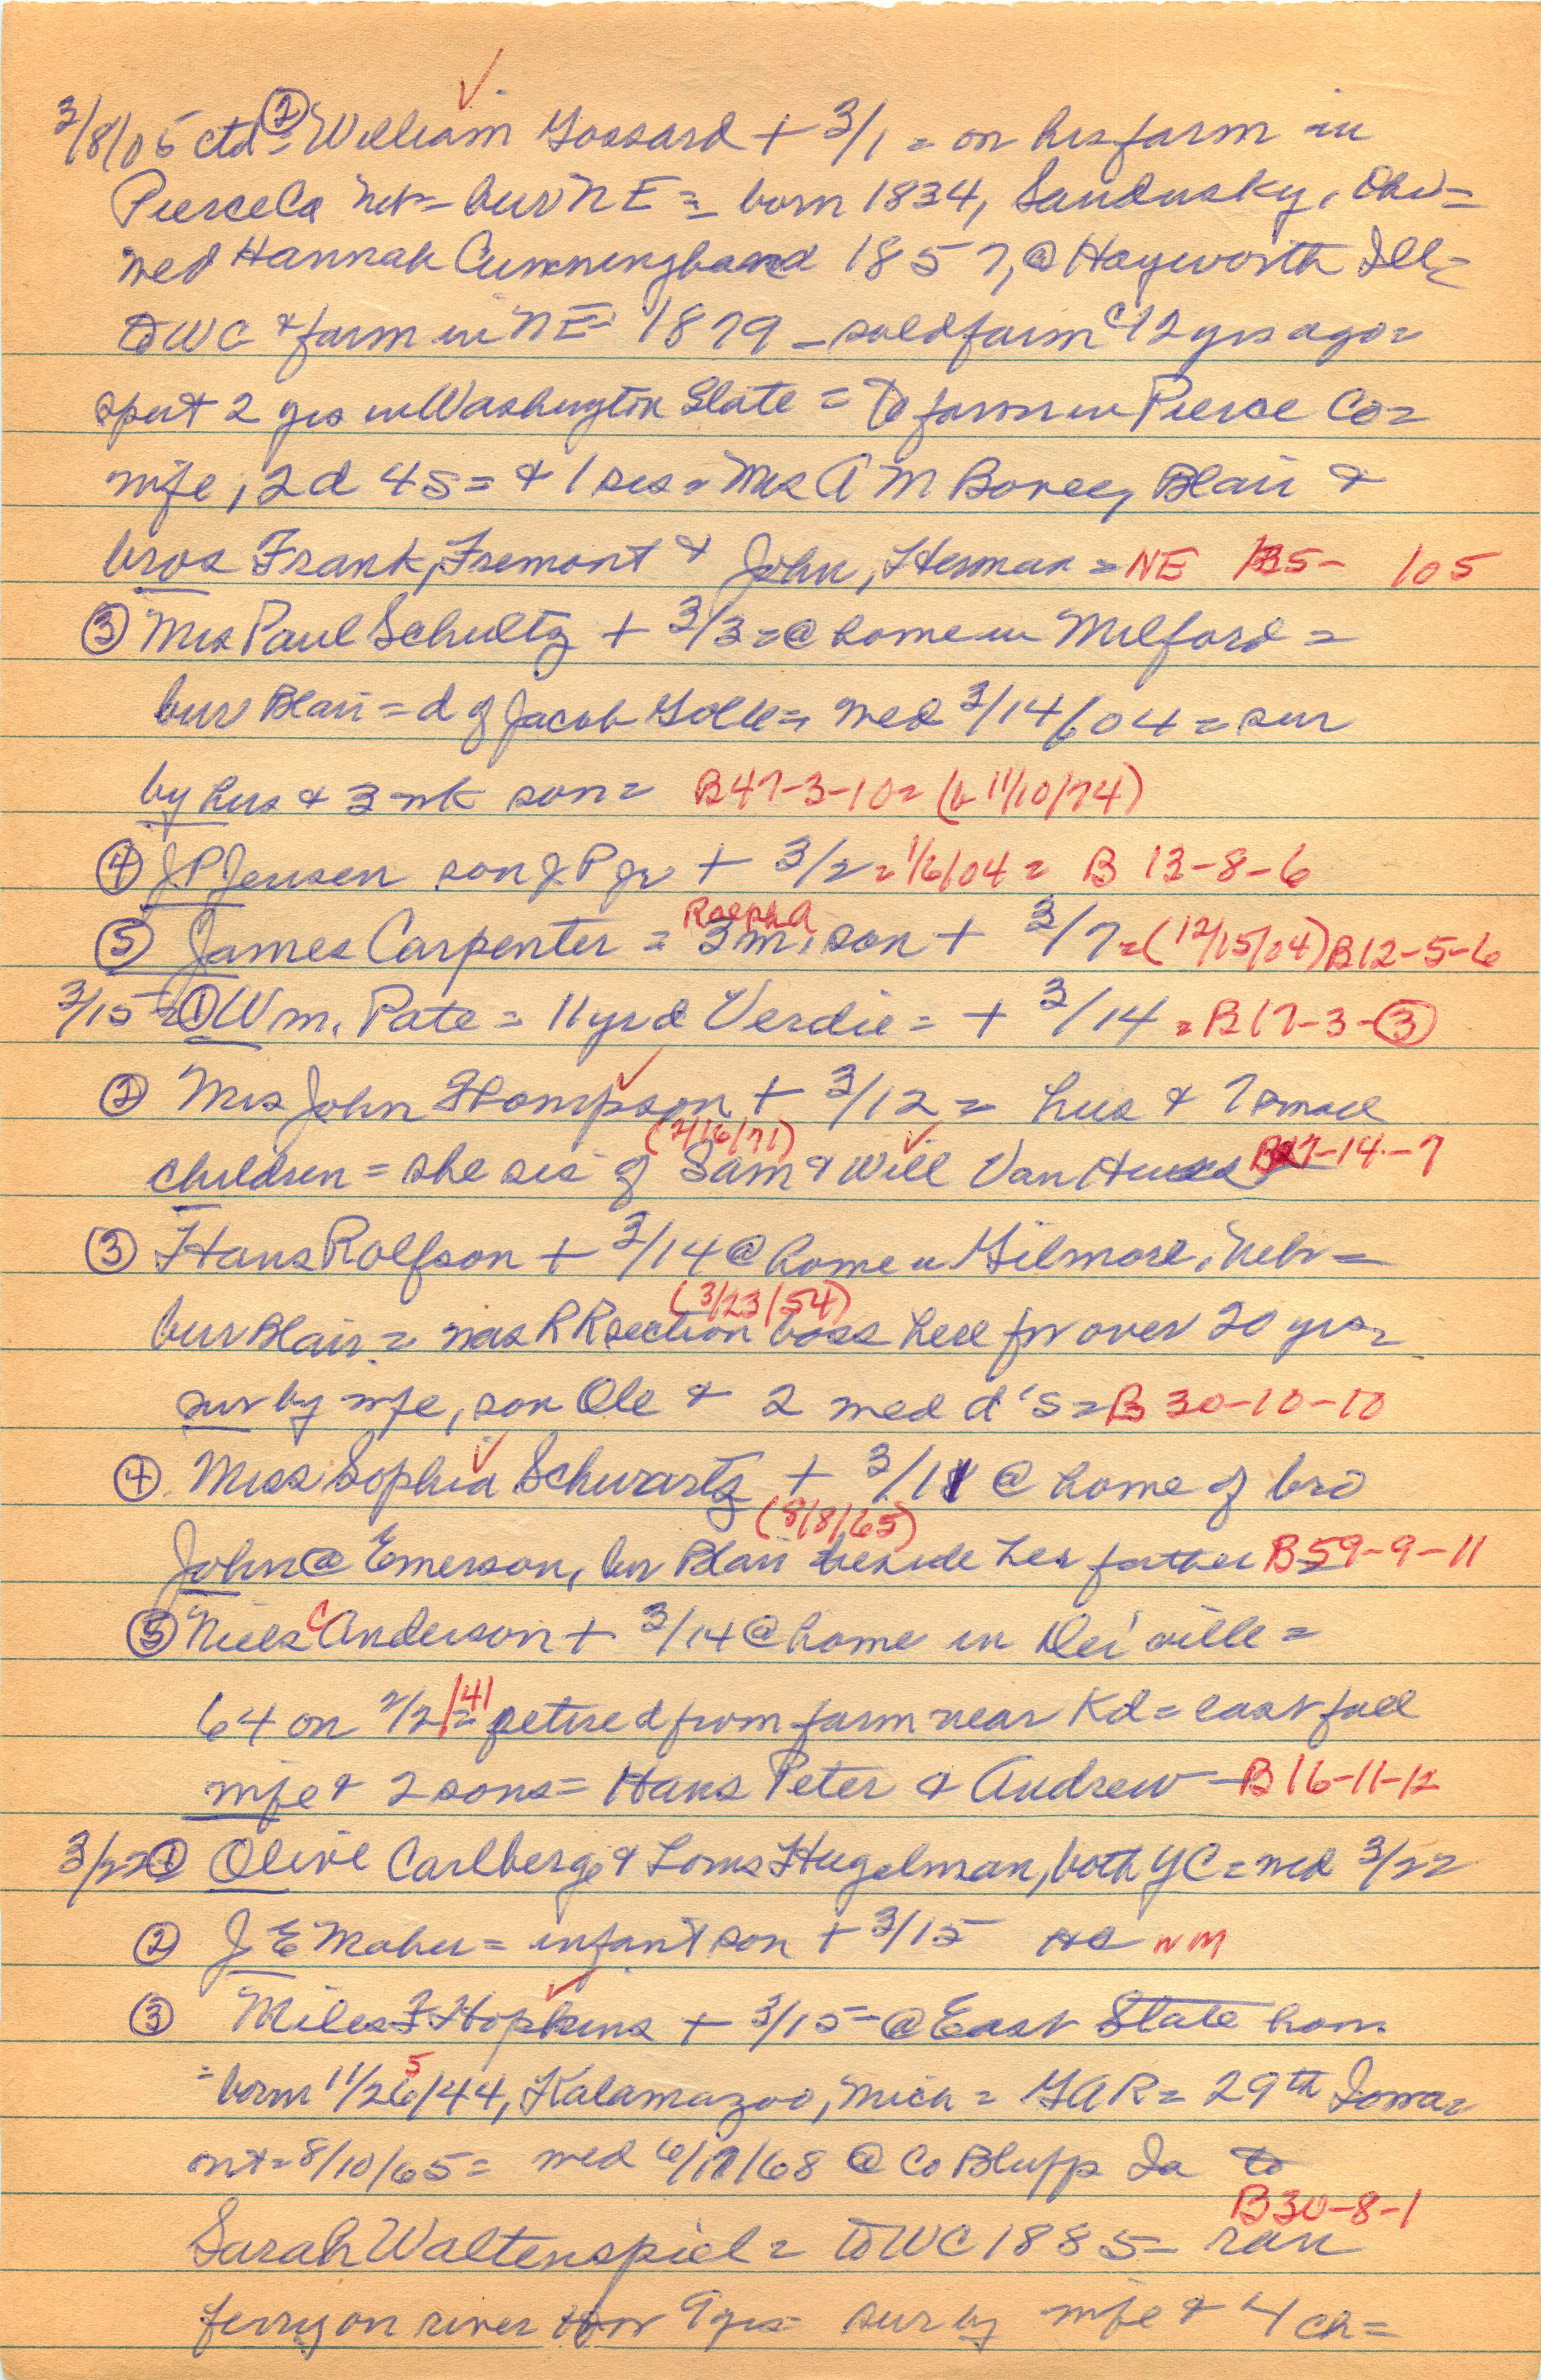 3/8/05 ctd = ② William Gossard + 3/1 = on his farm in
Pierce Co Neb = bur NE = born 1834, Sandusky, Ohio =
med Hannah Cunningham 1857, @ Hayworth Ill =
to WC & farm in NE 1879 - sold farm c 12 yrs ago =
spent 2 yrs in Washington State = to farm in Pierce Co =
wife, 2d 4s = & 1 sis = Mrs A M Bovee, Blair &
bros Frank, Fremont & John, Herman = NE 135- 105
③ Mrs Paul Schultz + 3/3 = @ home in Milford =
bur Blair = d of Jacob Goll = med 3/14/04 = sur
by hus & 3 wk son = B47-3-10 = (b 11/10/74)
④ J P Jensen son J P Jr + 3/2 = 1/6/04 = B 13-8-6
Ralph A
⑤ James Carpenter = 3 m. son + 3/7 = (12/15/04) B12-5-6
3/15 = ① Wm. Pate = 11 yr d Verdie = + 3/14 = B17-3-③
② Mrs John Thompson + 3/12 = hus & 7 small
(2/16/71)
children = she sis of Sam & Will Van -14-7
③ Hans Rolfson + 3/14 @ home in Gilmore, Nebr =
(3/23/54)
bur Blair = was RR section boss here for over 20 yrs =
sur by wife, son Ole & 2 med d's = B 30-10-10
④ Miss Sophia Schwartz + 3/11 @ home of bro
(8/8/65)
John @ Emerson, bur Blair beside her father B59-9-11
⑤ Niels C Anderson + 3/14 @ home in Des'ville =
64 on 2/2/41 = retired from farm near Kd = last fall
wife & 2 sons = Hans Peter & Andrew - B16-11-12
3/22 ① Olive Carlberg & Louis Hugelman, both YC = med 3/22
② J E Maher = infant son + 3/15 HC NM
③ Miles F Hopkins + 3/15 = @ East State hom
5
= born 11/26/44, Kalamazoo, Mich = GAR = 29th Iowa =
out = 8/10/65 = med 6/17/68 @ Co Bluffs Ia to
B30-8-1
Sarah Waltenspiel = to WC 1885 = ran
ferry on river for 9 yrs = sur by wife & 4 ch =